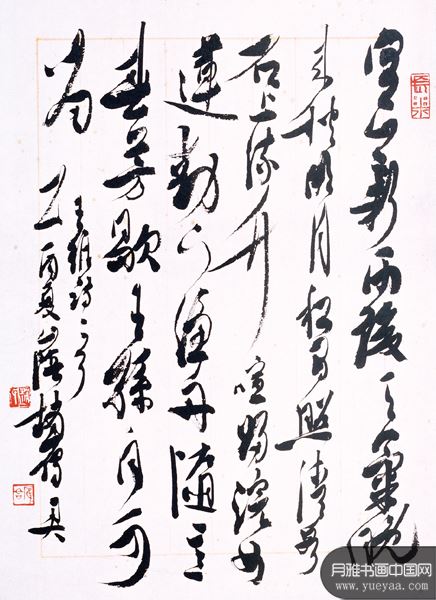 空山新雨後天氣晚
来秋明月松間照清泉
石上流竹喧歸浣女
蓮動下漁舟隨意
春芳歇王孫自可
留
王維詩一首
乙酉夏山陰
月雅书画中国网
www.yueyaa.com